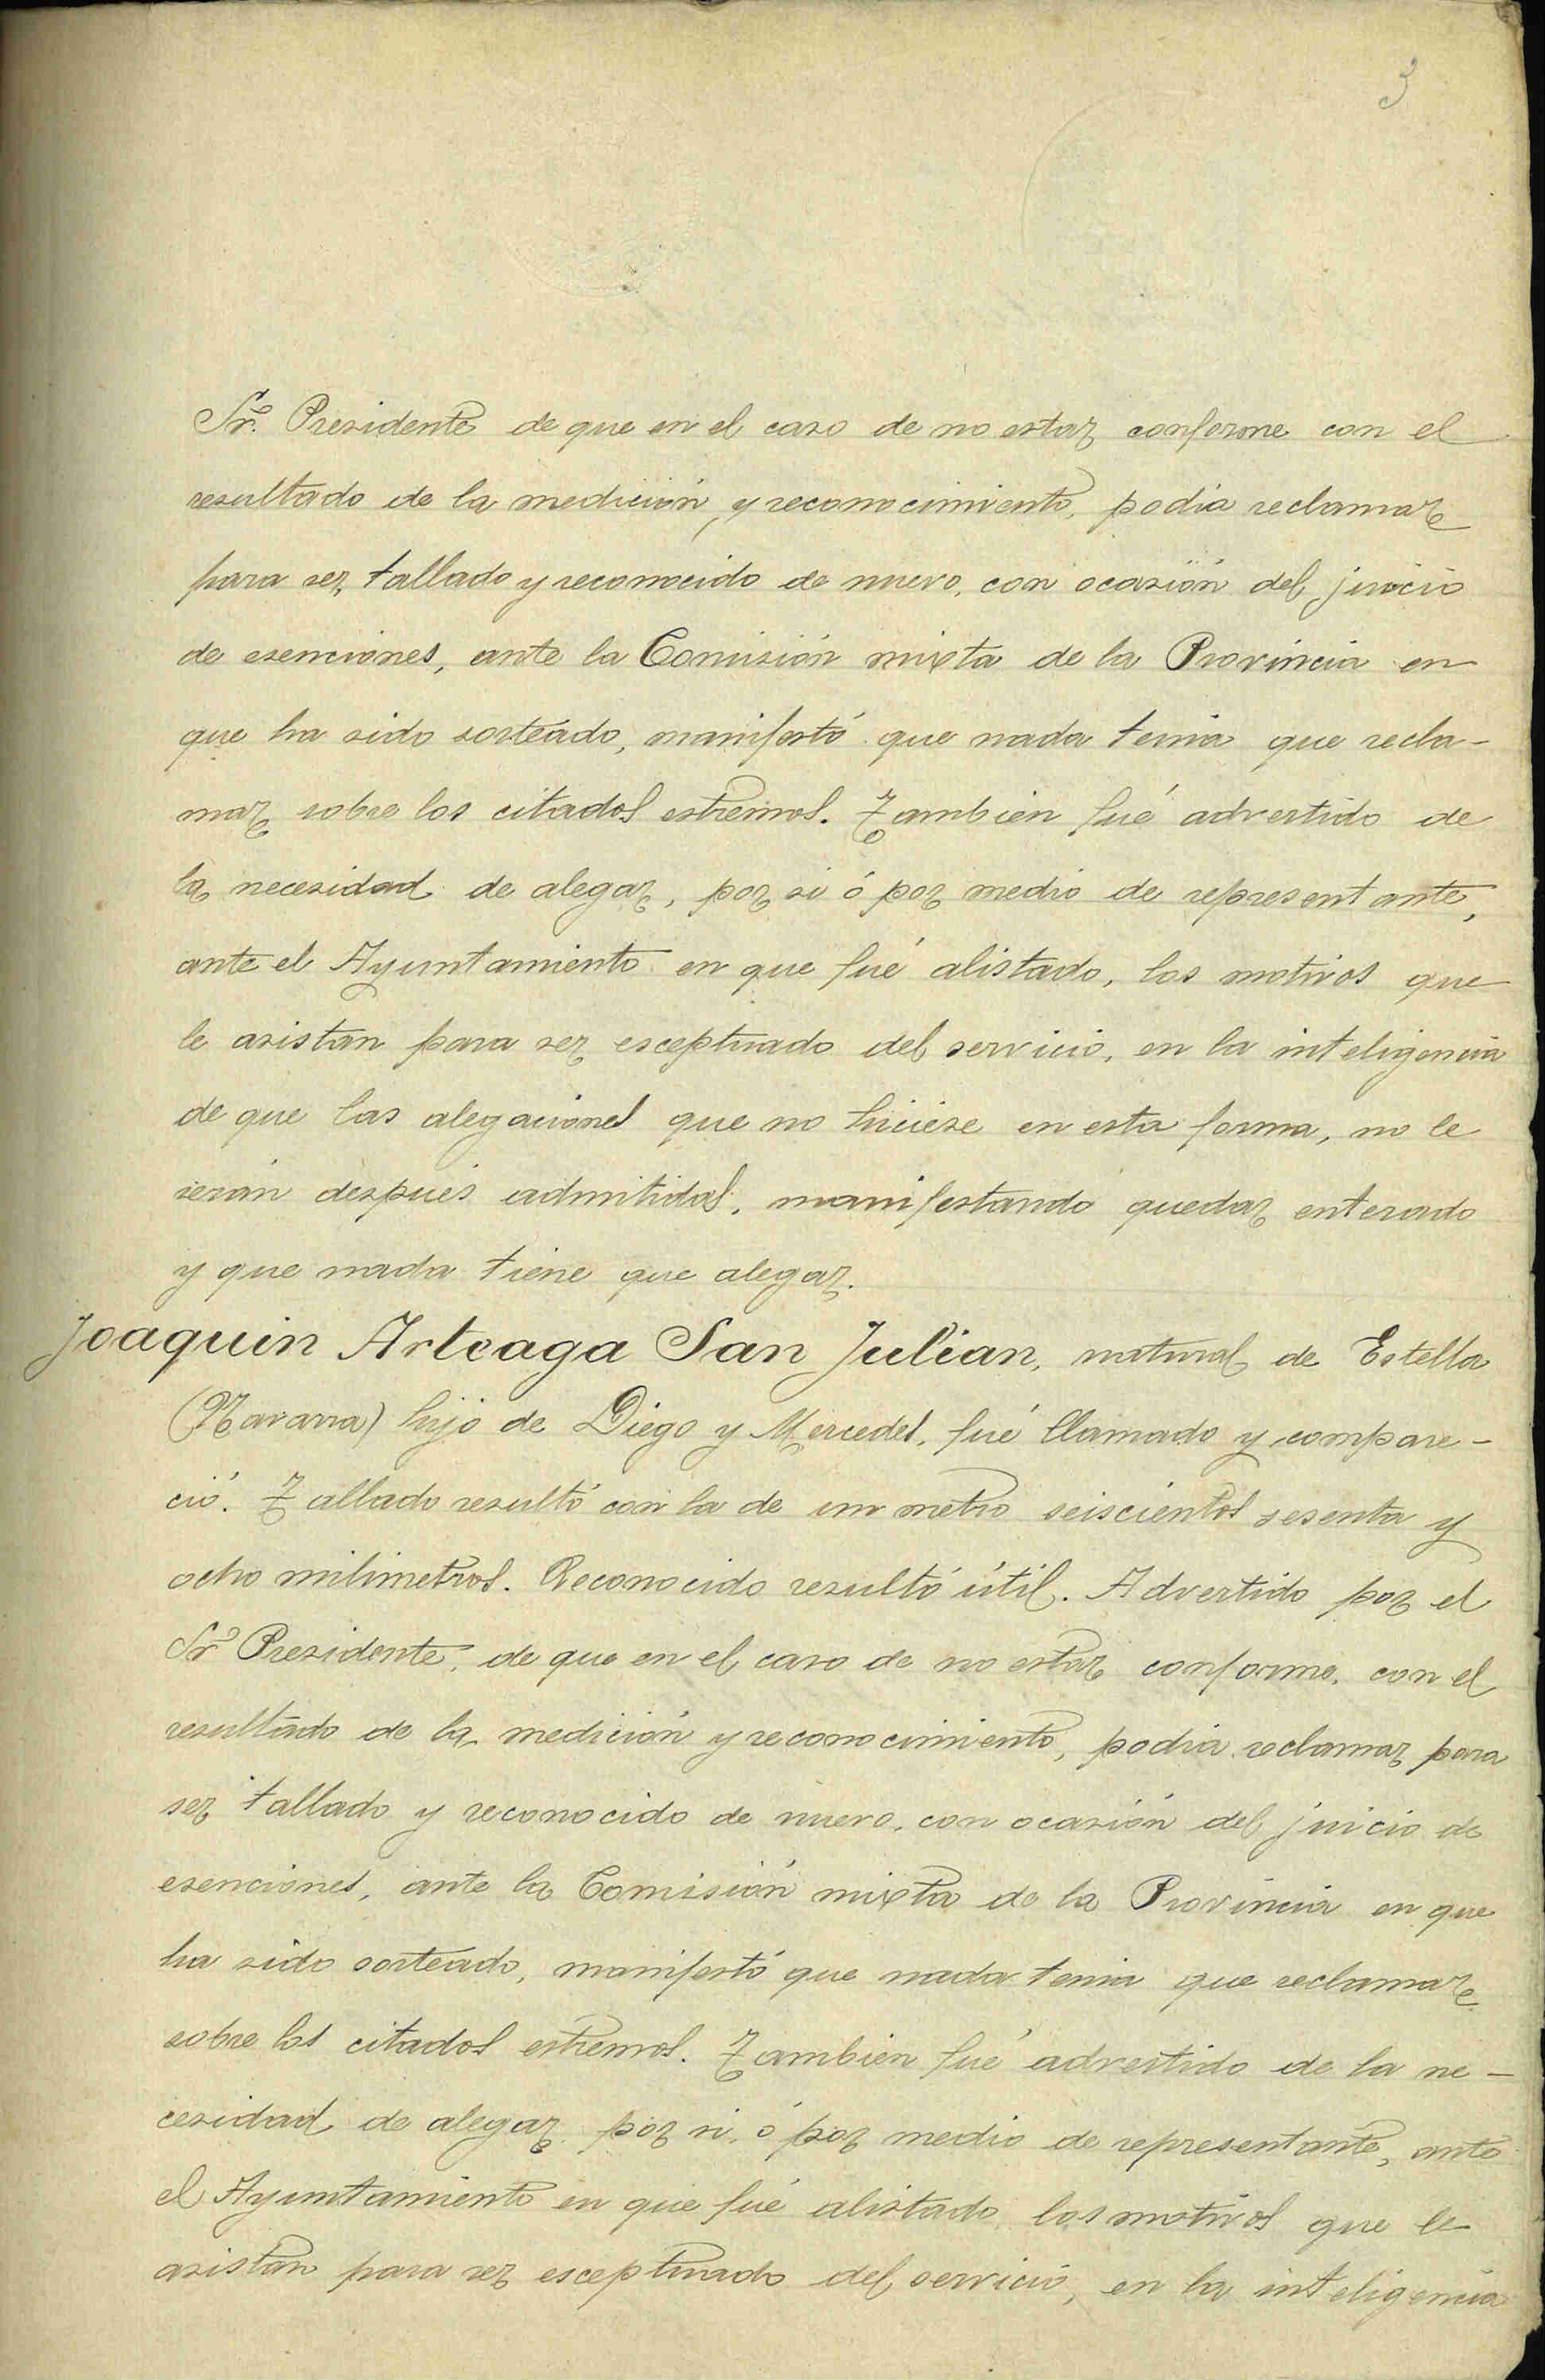 3
Sr. Presidente de que en el caso de no estar conforme con el
resultado de la medición, y reconocimiento, podia reclamar
para ser, tallado y reconocido de nuevo, con ocasión del juicio
de esenciones, ante la Comisión mixta de la Provincia en
que ha sido sorteado, manifestó que nada tenia que recla-
mar sobre los citados estremos. Tambien fué advertido de
la necesidad de alegar, por si ó por medio de representante,
ante el Ayuntamiento en que fué alistado, los motivos que
le asistan para ser esceptuado del servicio, en la inteligencia
de que las alegaciones que no hiciese en esta forma, no le
serán después admitidas, manifestando quedar enterado
y que nada tiene que alegar.
Joaquin Arteaga San Julian, natural de Estella
(Navarra) hijo de Diego y Mercedes, fué llamado y compare-
ció. Tallado resultó con la de un metro seiscientos sesenta y
ocho milimetros. Reconocido resultó útil. Advertido por el
Sr. Presidente, de que en el caso de no estar conforme, con el
resultado de la medición y reconocimiento, podia reclamar para
ser tallado y reconocido de nuevo, con ocasión del juicio de
esenciones, ante la Comisión mixta de la Provincia en que
ha sido sorteado, manifestó que nada tenia que reclamar
sobre los citados estremos. Tambien fué advertido de la ne-
cesidad de alegar por si, ó por medio de representante, ante
el Ayuntamiento en que fué alistado, los motivos que le
asistan para ser esceptuado del servicio, en la inteligencia